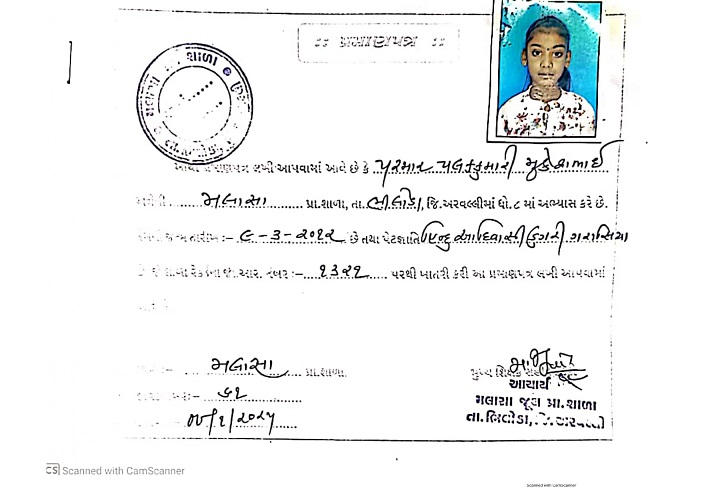 :: પ્રમાણપત્ર ::
પ્રમાણપત્ર લખી આપવામાં આવે છે કે પરમાર પલકકુમારી મુકેશભાઈ
મલાસા પ્રા.શાળા, તા. ભીલોડા, જિ.અરવલ્લીમાં ધો.૮ માં અભ્યાસ કરે છે.
તારીખ :- ૯-૩-૨૦૧૨ છે તથા પેટાજ્ઞાતિ હિન્દુ આદિવાસી ડુંગરી ગરાસિયા
આર. નંબર :- ૧૩૨૧ પરથી ખાતરી કરી આ પ્રમાણપત્ર લખી આપવામાં
મલાસા પ્રા.શાળા
મુખ્ય શિક્ષક
આચાર્ય
૬૧
મલાસા જૂથ પ્રા.શાળા
તા.ભિલોડા, જિ.અરવલ્લી
/૧/૨૦૨૫
CS Scanned with CamScanner
Scanned with CamScanner